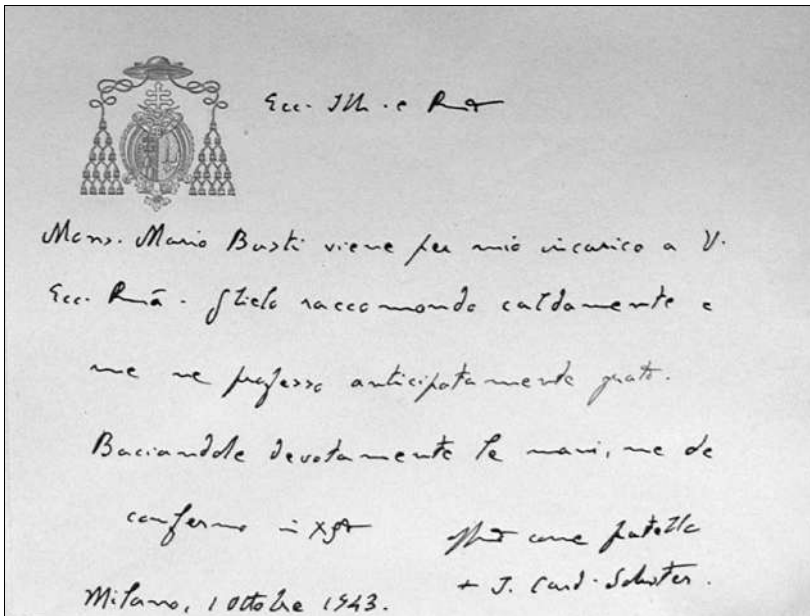 Ecc. Ill. e Rma
Mons. Mario Busti viene per mio incarico a V.
Ecc. Rmā. Glielo raccomando caldamente e
me ne professo anticipatamente grato.
Baciandole devotamente le mani, me Le
confermo in Xpto
come fratello
Milano, 1 Ottobre 1943.
+ I. Card. Schuster.